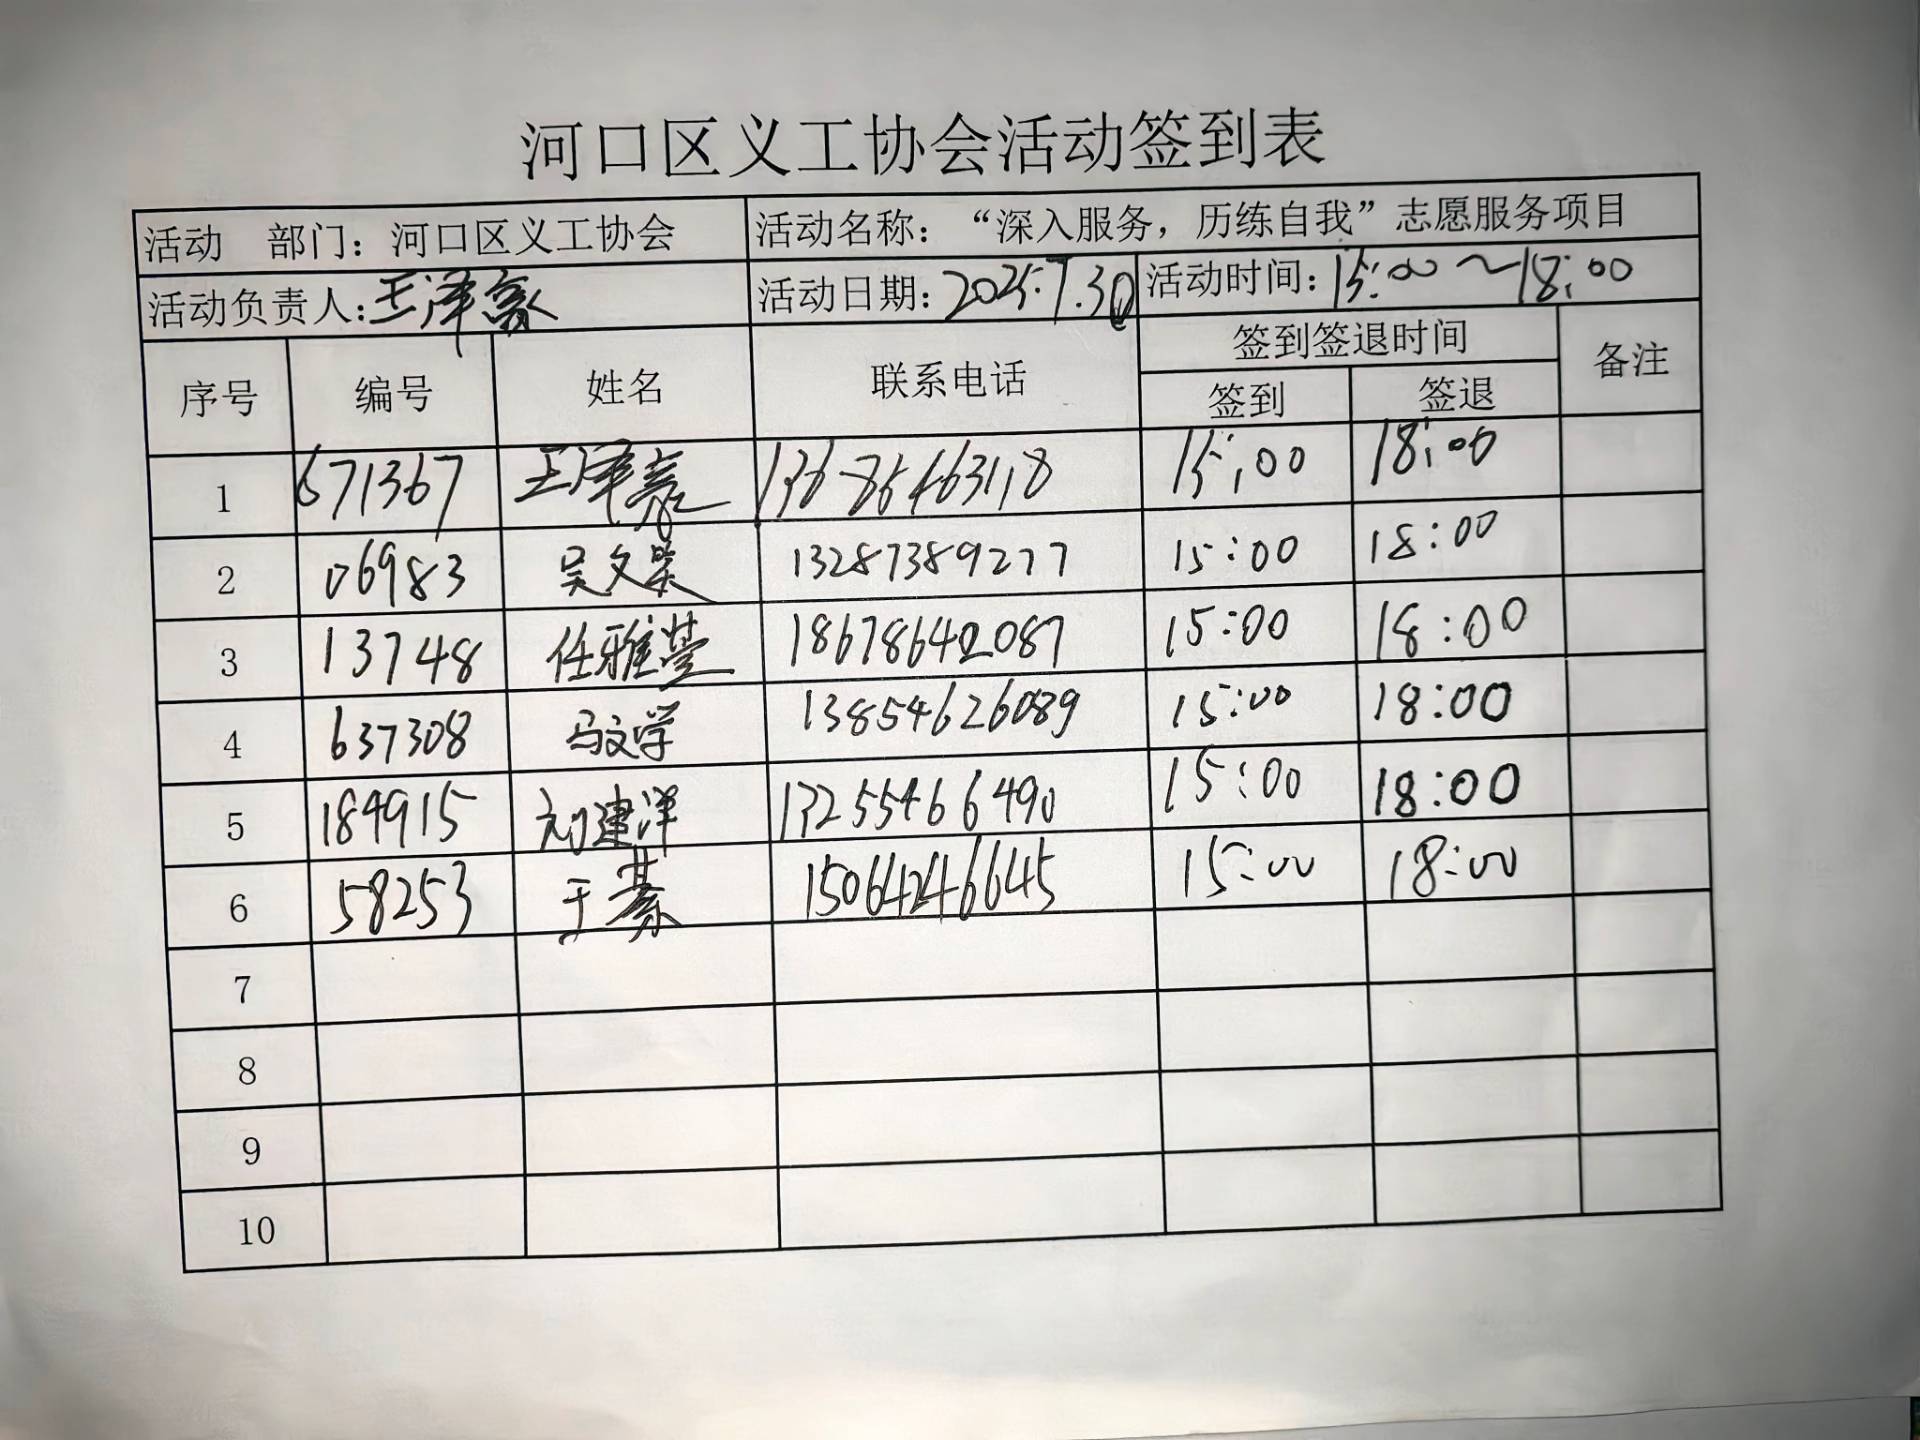 河口区义工协会活动签到表
活动 部门：河口区义工协会 活动名称：“深入服务，历练自我”志愿服务项目
活动负责人：王泽豪 活动日期：2025.7.30 活动时间：15:00～18:00
序号 编号 姓名 联系电话 签到签退时间 备注
签到 签退
1 671367 王泽豪 13685463118 15:00 18:00
2 06983 吴文昊 13287389277 15:00 18:00
3 13748 任雅莹 18678642087 15:00 18:00
4 637308 马文学 13854626089 15:00 18:00
5 184915 刘建洋 13255466490 15:00 18:00
6 58253 于綦 15064246645 15:00 18:00
7
8
9
10